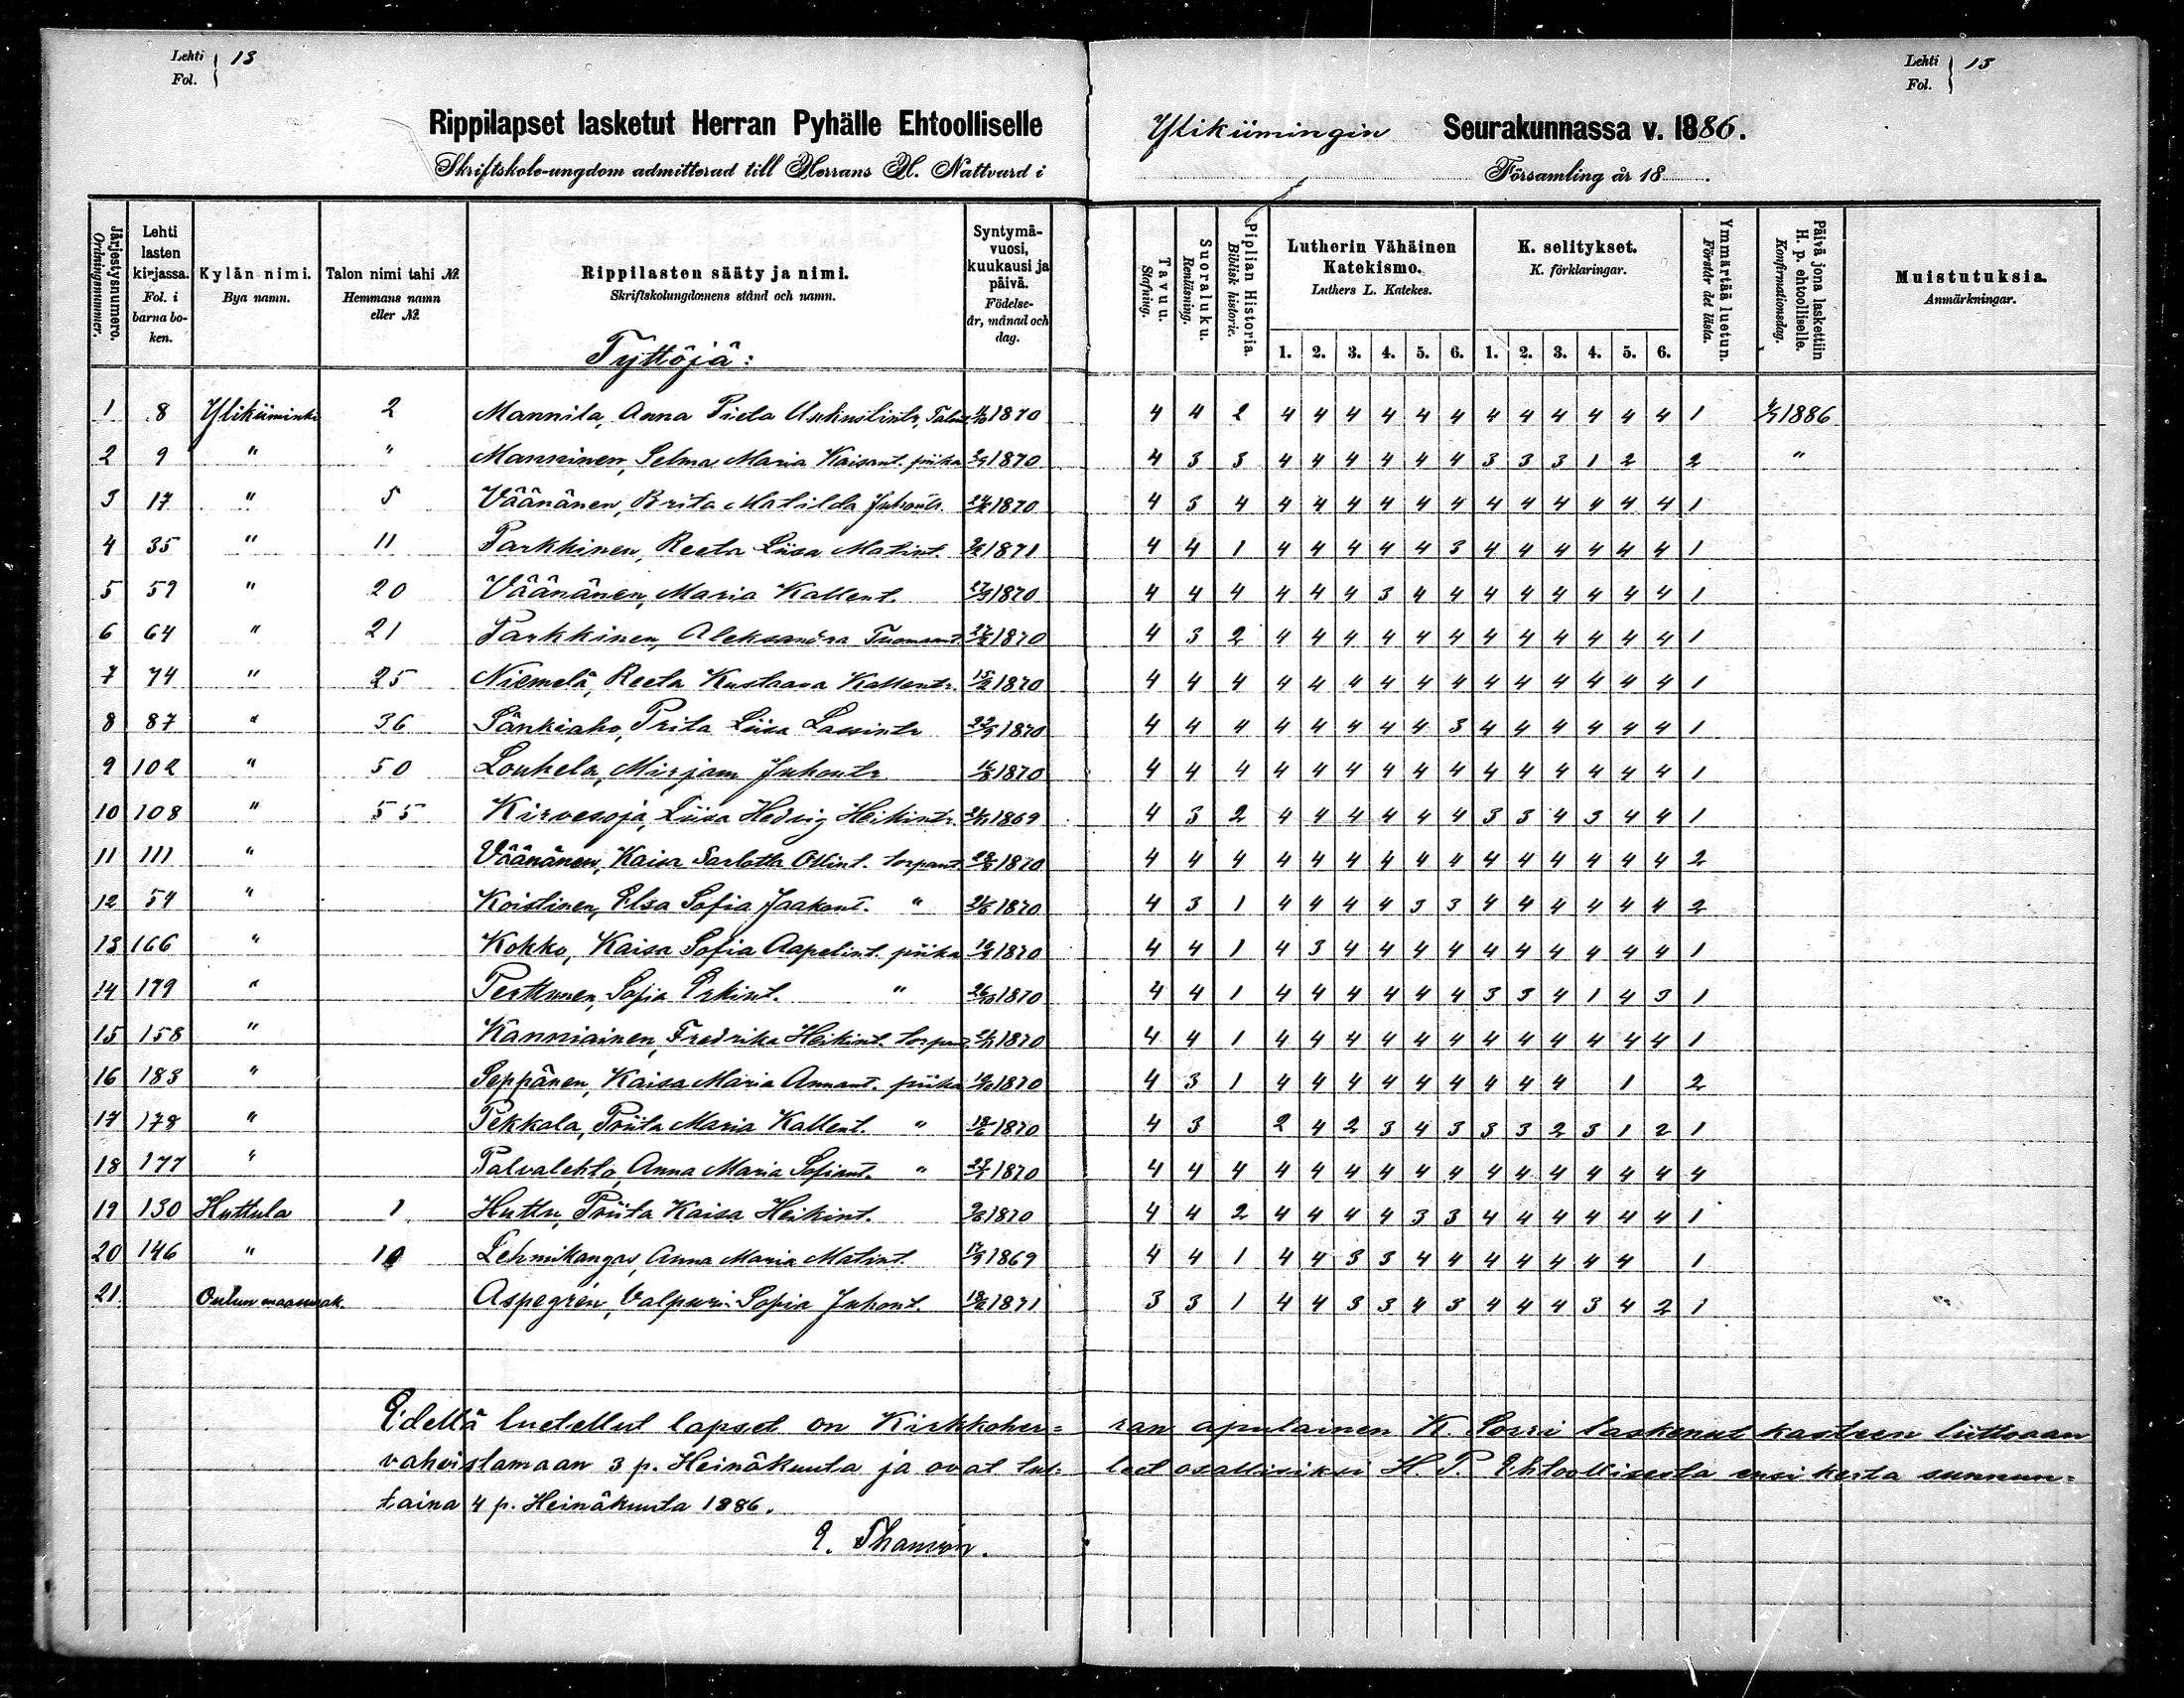 Lehti Fol. 13
Lehti Fol. 13
Rippilapset lasketut Herran Pyhälle Ehtoolliselle Ylikiimingin Seurakunnassa v. 1886.
Skriftskole-ungdom admitterad till Herrans H. Nattvard i Församling år 18
Järjestysnumero. Ordningsnummer.
Lehti lasten kirjassa. Fol. i barna boken.
Kylän nimi. Bya namn.
Talon nimi tahi №. Hemmans namn eller №.
Rippilasten sääty ja nimi. Skriftskolungdomens stånd och namn.
Syntymävuosi, kuukausi ja päivä. Födelse-år, månad och dag.
Tavu u. Stafning.
Suoraluku. Renläsning.
Piplian Historia. Biblisk historie.
Lutherin Vähäinen Katekismo. Luthers L. Katekes.
K. selitykset. K. förklaringar.
Ymmärtää luetun. Förstår det lästa.
Päivä jona laskettiin H. p. ehtoolliselle. Konfirmationsdag.
Muistutuksia. Anmärkningar.
1. 2. 3. 4. 5. 6. 1. 2. 3. 4. 5. 6.
Tyttöjä:
1 8 Ylikiiminki 2 Mannila, Anna Prieta 1870 4 4 2 4 4 4 4 4 4 4 4 4 4 4 4 1 4/7 1886
2 9 " " Manninen, Selma Maria Kaisant. piika 1870 4 3 3 4 4 4 4 4 4 3 3 3 1 2 2 "
3 17 " 5 Väänänen, Brita Matilda 1870 4 3 4 4 4 4 4 4 4 4 4 4 4 4 4 1
4 35 " 11 Parkkinen, Reeta Liisa Matint. 1871 4 4 1 4 4 4 4 4 3 4 4 4 4 4 4 1
5 59 " 20 Väänänen, Maria Kallent. 1870 4 4 4 4 4 4 3 4 4 4 4 4 4 4 4 1
6 64 " 21 Parkkinen, Aleksandra Tuomaant. 1870 4 3 2 4 4 4 4 4 4 4 4 4 4 4 4 1
7 74 " 25 Niemelä, Reeta Kustaava Kallentr. 1870 4 4 4 4 4 4 4 4 4 4 4 4 4 4 4 1
8 87 " 36 Sänkiaho, Prita Liisa Lassintr 1870 4 4 4 4 4 4 4 4 3 4 4 4 4 4 4 1
9 102 " 50 Loukela, Mirjam Juhontr 1870 4 4 4 4 4 4 4 4 4 4 4 4 4 4 4 1
10 108 " 55 Kirvesoja, Liisa Hedvig Heikintr. 1869 4 3 2 4 4 4 4 4 4 3 3 4 3 4 4 1
11 111 " Väänänen, Kaisa Sarlotta Ollint. torpant. 1870 4 4 4 4 4 4 4 4 4 4 4 4 4 4 4 2
12 54 " Koistinen, Elsa Sofia Jaakont. " 1870 4 3 1 4 4 4 4 3 3 4 4 4 4 4 4 2
13 166 " Kokko, Kaisa Sofia Aapelint. piika 1870 4 4 1 4 3 4 4 4 4 4 4 4 4 4 4 1
14 179 " Perttunen, Sofia Erkint. " 26/10 1870 4 4 1 4 4 4 4 4 4 3 3 4 1 4 3 1
15 158 " Kanniainen, Fredrika Heikint. torpant 1870 4 4 1 4 4 4 4 4 4 4 4 4 4 4 4 1
16 183 " Seppänen, Kaisa Maria Annant. piika 1870 4 3 1 4 4 4 4 4 4 4 4 4 1 2
17 178 " Pekkala, Priita Maria Kallent. " 1870 4 3 2 4 2 3 4 3 3 3 2 3 1 2 1
18 177 " Palvalehto, Anna Maria Sofiant. " 1870 4 4 4 4 4 4 4 4 4 4 4 4 4 4 4 4
19 130 Huttula 1 Huttu, Priita Kaisa Heikint. 1870 4 4 2 4 4 4 4 3 3 4 4 4 4 4 4 1
20 146 " 10 Lehmikangas, Anna Maria Matint. 1869 4 4 1 4 4 3 3 4 4 4 4 4 4 4 1
21. Oulun maaseurak. Aspegren, Valpuri Sofia Juhont. 1871 3 3 1 4 4 3 3 4 3 4 4 4 3 4 2 1
Edellä luetellut lapset on Kirkkoher= ran apulainen K. Sorri laskenut kasteen liittoaan
vahvistamaan 3 p. Heinäkuuta ja ovat tul= leet osallisiksi H. P. Ehtoollisesta ensi kerta sunnun=
taina 4 p. Heinäkuuta 1886.